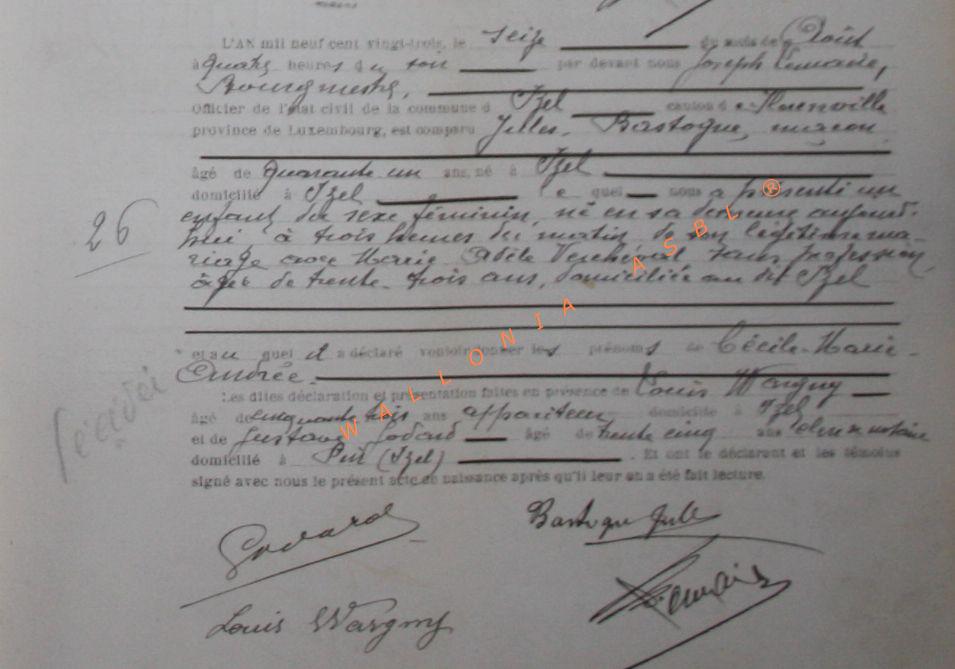 L'AN mil neuf cent vingt-trois, le seize du mois de Août
à quatre heures du soir par devant nous Joseph Lemaire,
Bourgmestre,
Officier de l'état civil de la commune d'Izel canton de Florenville
province de Luxembourg, est comparu Jules Bastogne, maçon
âgé de quarante un ans, né à Izel
domicilié à Izel lequel nous a présenté un
26
enfant du sexe féminin, né en sa demeure aujourd'
hui à trois heures du matin de son légitime ma-
riage avec Marie Adèle sans profession,
âgée de trente-trois ans, domiciliée au dit Izel
et auquel il a déclaré vouloir donner les prénoms de Cécile-Marie
Andrée.
Les dites déclaration et présentation faites en présence de Louis Wargny
âgé de cinquante trois ans appariteur domicilié à Izel
et de Gustave Godard âgé de trente cinq ans clerc de notaire
domicilié à Pin (Izel). Et ont le déclarant et les témoins
signé avec nous le présent acte de naissance après qu'il leur en a été fait lecture.
Godard
Bastogne Jules
Louis Wargny
Lemaire
WALLONIA ASBL ®